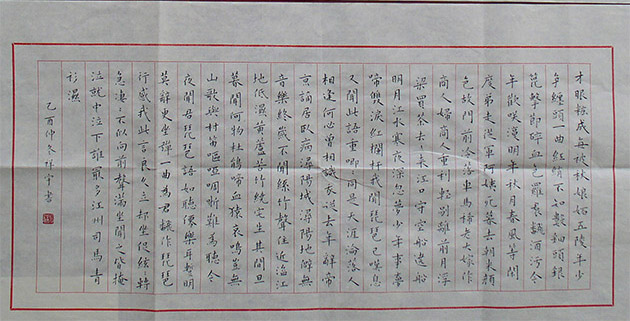 才服妝成每被秋娘妒五陵年少
争纏頭一曲紅綃不知數鈿頭銀
篦擊節碎血色羅裙翻酒污今
年歡笑復明年秋月春風等閒
度弟走從軍阿姨死暮去朝來顏
色故門前冷落車馬稀老大嫁作
商人婦商人重利輕別離前月浮
梁買茶去去來江口守空船遶船
明月江水寒夜深忽夢少年事夢
啼雙淚紅欄杆我聞琵琶已嘆息
又聞此語重唧唧同是天涯淪落人
相逢何必曾相識我從去年辭帝
京謫居臥病潯陽城潯陽地僻無
音樂終歲不聞絲竹聲住近湓江
地低濕黃蘆苦竹繞宅生其間旦
暮聞何物杜鵑啼血猿哀鳴豈無
山歌與村笛嘔啞嘲哳難為聽今
夜聞君琵琶語如聽仙樂耳暫明
莫辭更坐彈一曲為君翻作琵琶
行感我此言良久立却坐促絃轉
急淒淒不似向前聲滿坐聞之皆掩
泣就中泣下誰最多江州司馬青
衫濕
乙酉仲冬祥宇書